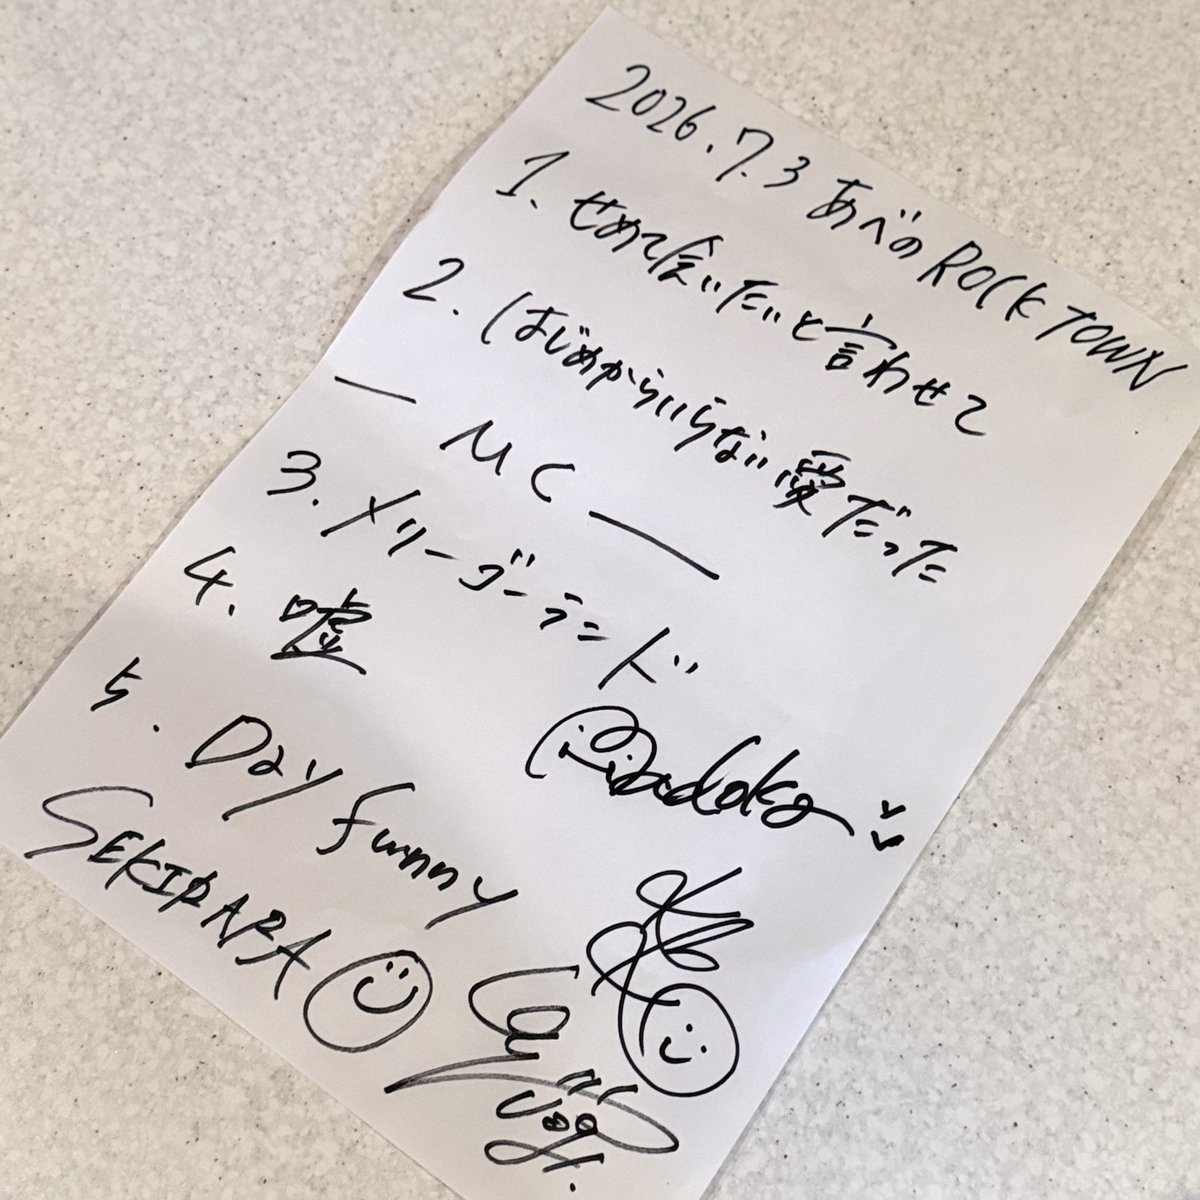 2026.7.3 あべのROCKTOWN
1. せめて会いたいと言わせて
2. はじめからいらない愛だった
— MC —
3. メリーゴーランド
4. 嘘
5. Day funny
SEKIRARA